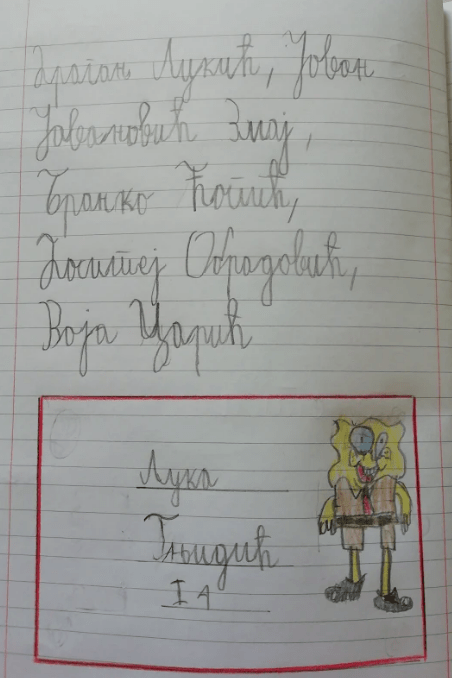 Драган Лукић, Јован
Јовановић Змај,
Бранко Ћопић,
Доситеј Обрадовић,
Воја Царић
Лука
Гњидић
I 4